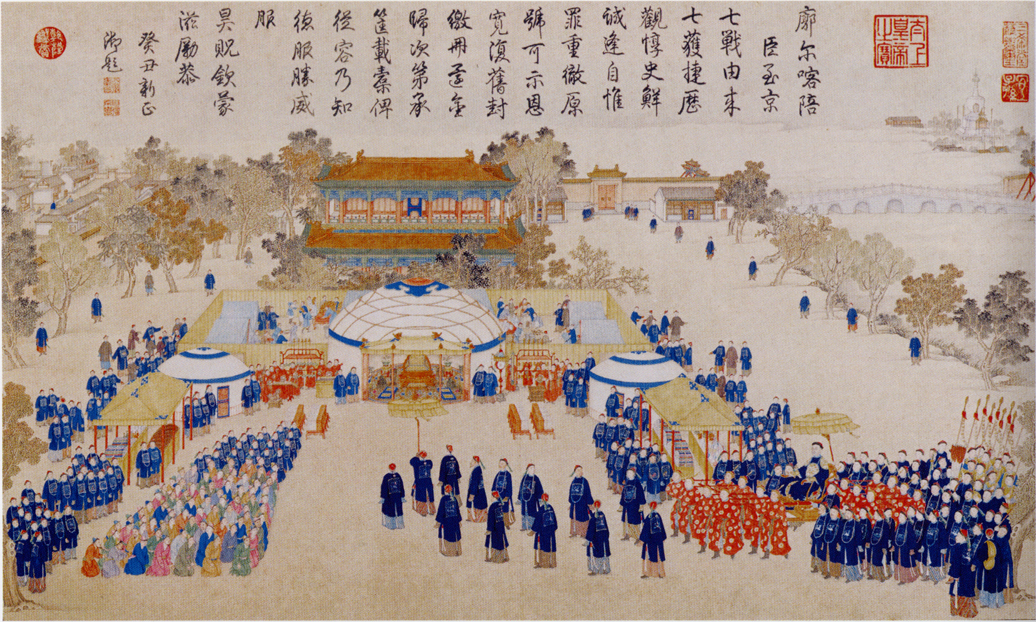 廓尔喀陪
臣至京
七戰由来
七獲捷歷
觀惇史鮮
誠逢自惟
罪重徹原
號可示恩
寬復舊封
繳冊還金
歸次第承
筐載櫜俾
從容乃知
後服勝威
服
昊貺欽蒙
滋勵恭
癸丑新正
御題
太上皇帝之寶